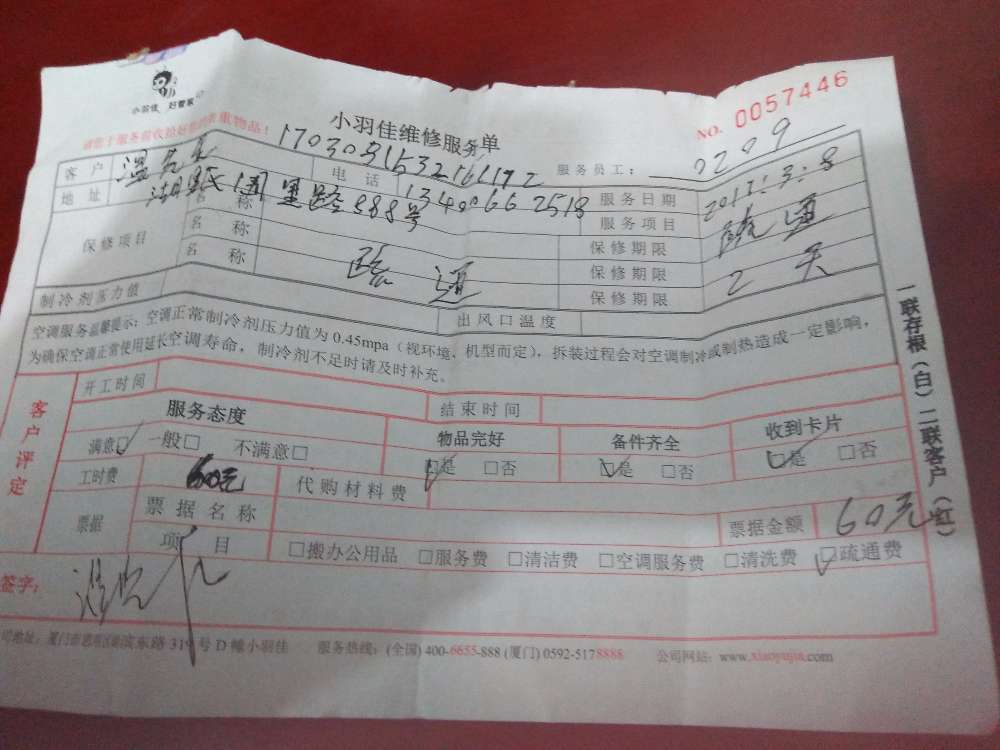 小羽佳 好管家
小羽佳维修服务单
NO. 0057446
请您于服务前收拾好您的贵重物品!
1703091532161192
客户
电话 13400662518
服务员工: 0209
地址
888号
服务日期 2017:3:8
保修项目
名称
服务项目 疏通
名称
保修期限
名称 疏通
保修期限 2天
保修期限
制冷剂压力值
出风口温度
空调服务温馨提示:空调正常制冷剂压力值为 0.45mpa(视环境、机型而定),拆装过程会对空调制冷或制热造成一定影响,
为确保空调正常使用延长空调寿命,制冷剂不足时请及时补充。
客户评定
开工时间
结束时间
服务态度
物品完好
备件齐全
收到卡片
满意□ 一般□ 不满意□
□是 □否
□是 □否
□是 □否
工时费 60元
代购材料费
票据
票据名称
票据金额 60元
项目
□搬办公用品 □服务费 □清洁费 □空调服务费 □清洗费 □疏通费
签字:
司地址:厦门市思明区湖滨东路 319 号 D 幢小羽佳 服务热线:(全国) 400-6655-888 (厦门) 0592-5178888 公司网站:www.xiaoyujia.com
一联存根(白)二联客户(红)